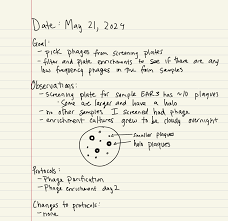 Date: May 21, 2024
Goal:
- pick phages from screening plates
- filter and plate enrichments to see if there are any
low frequency phages in the farm samples
Observations:
- screening plate for sample EAR3 has ~10 plaques
Some are larger and have a halo
- no other samples I screened had phage
- enrichment cultures grew to be cloudy overnight
smaller plaques
halo plaques
Protocols:
- Phage Purification
- Phage enrichment day 2
Changes to protocols:
- none